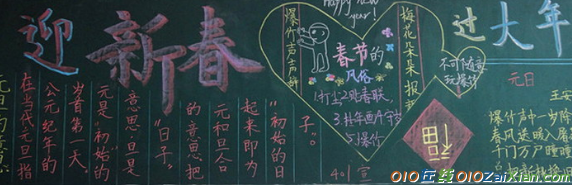 迎新春
元旦的意思
在当代元旦指
公元纪年的
岁首第一天。
元是“初始的”
意思旦是
“日子”
的意思.把
元和旦合
起来即为
“初始的日
子”。
401宣
Happy new
year!
爆竹声声
梅花朵朵报
春节的
风俗
1.扫尘2.贴春联,
3.挂年画4.守
5爆竹
过大年
不可随意
玩爆竹
福
元日
王安
爆竹声中一岁除
春风送暖入屠
千门万户曈曈
010在线 010zaixian.com